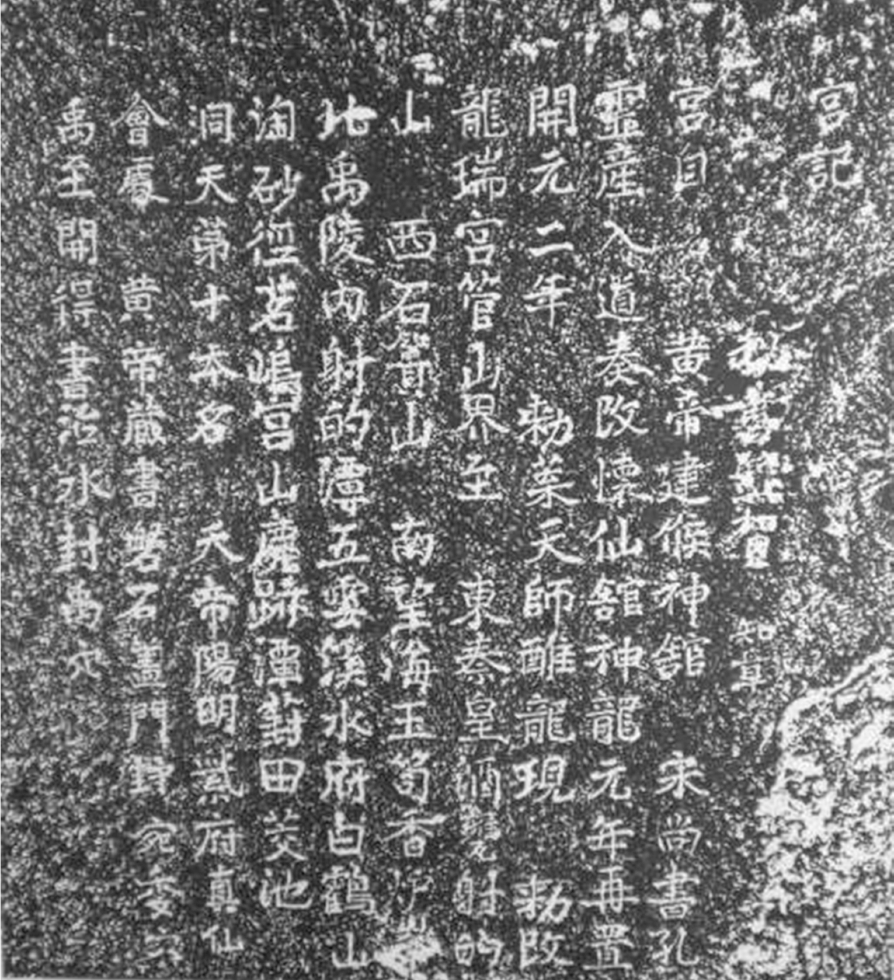 宮記
秘書監賀 知章
宮自 黃帝建候神舘 宋尚書孔
靈產入道奏改懷仙舘神龍元年再置
開元二年 勅葉天師醮龍現 勅改
龍瑞宮管山界至 東秦皇酒甕射的
山 西石簣山 南望海玉笥香炉峯
北禹陵內射的潭五雲溪水府白鶴山
淘砂徑茗塢宮山鹿跡潭葑田茭池
洞天第十本名 天帝陽明紫府真仙
會處 黃帝藏書磐石盖門封 宛委穴
禹至開得書治水封禹穴